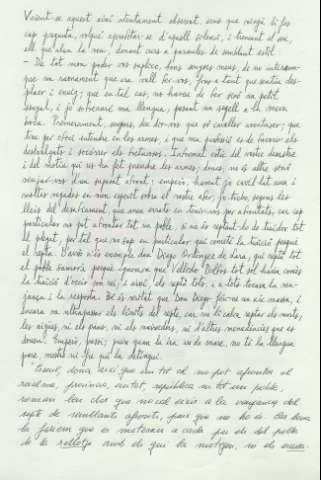 Veient-se aquest així atentament observat, sens que ningú li fes
cap pregunta, volgué aprofitar-se d'aquell silenci, i trencant el seu,
ell que alça la veu, donant curs a paraules de semblant estil:
- De tot mon poder vos suplico, bons senyors meus, de no interrom-
pre un raonament que vull fer-vos, fins a tant que sentiu des-
plaer i enuig; que en tal cas, no haureu de fer sinó un petit
senyal, i jo refrenaré ma llengua, posant un segell a la meva
boca. Primerament, senyors, deu dir-vos que só cavaller aventurer; que
tinc per ofici entendre en les armes, i que ma professió és de favorir els
desvalguts i socórrer els freturosos. Informat estic del vostre desastre
i del motiu qui us ha fet prendre les armes; doncs, no és altre sinó
venjar-vos d'un suposat afront; emperò, havent jo cavil·lat una i
moltes vegades en mon esperit sobre el vostre afer, jo trobo, segons les
lleis del desafiament, que aneu errats en tenir-vos per afrontats, car cap
particular no pot afrontar tot un poble, si no és reptant-lo de traïdor tot
el plegat, per tal que no sap en particular qui cometé la traïció perquè
el repta. D'això n'és exemple don Diego Ordóñez de Lara, qui reptà tot
el poble zamorà, perquè ignorava que Vellido Dolfos tot sol havia comès
la traïció d'occir son rei; i així, els reptà tots, i a tots tocava la ven-
jança i la resposta. Bé és veritat que Don Diego féu-ne un xic massa, i
encara va ultrapassar els límits del repte, car no li calia reptar els morts,
les aigües, ni els pans, ni els naixedors, ni d'altres menudències que es
diuen. Emperò, passi; puix quan la ira surt de mare, no té la llengua
pare, mestre ni fre qui la detingui.
Essent, doncs, així que un tot sol no pot afrontar el
reialme, província, ciutat, república ni tot un poble,
romàn ben clar que no cal eixir a la venjança del
repte de semblants afronts, puix que no ho és. Ans bona
la farien que es matessin a cada pas els del poble
de la rellotja amb els qui la motegen, ni els